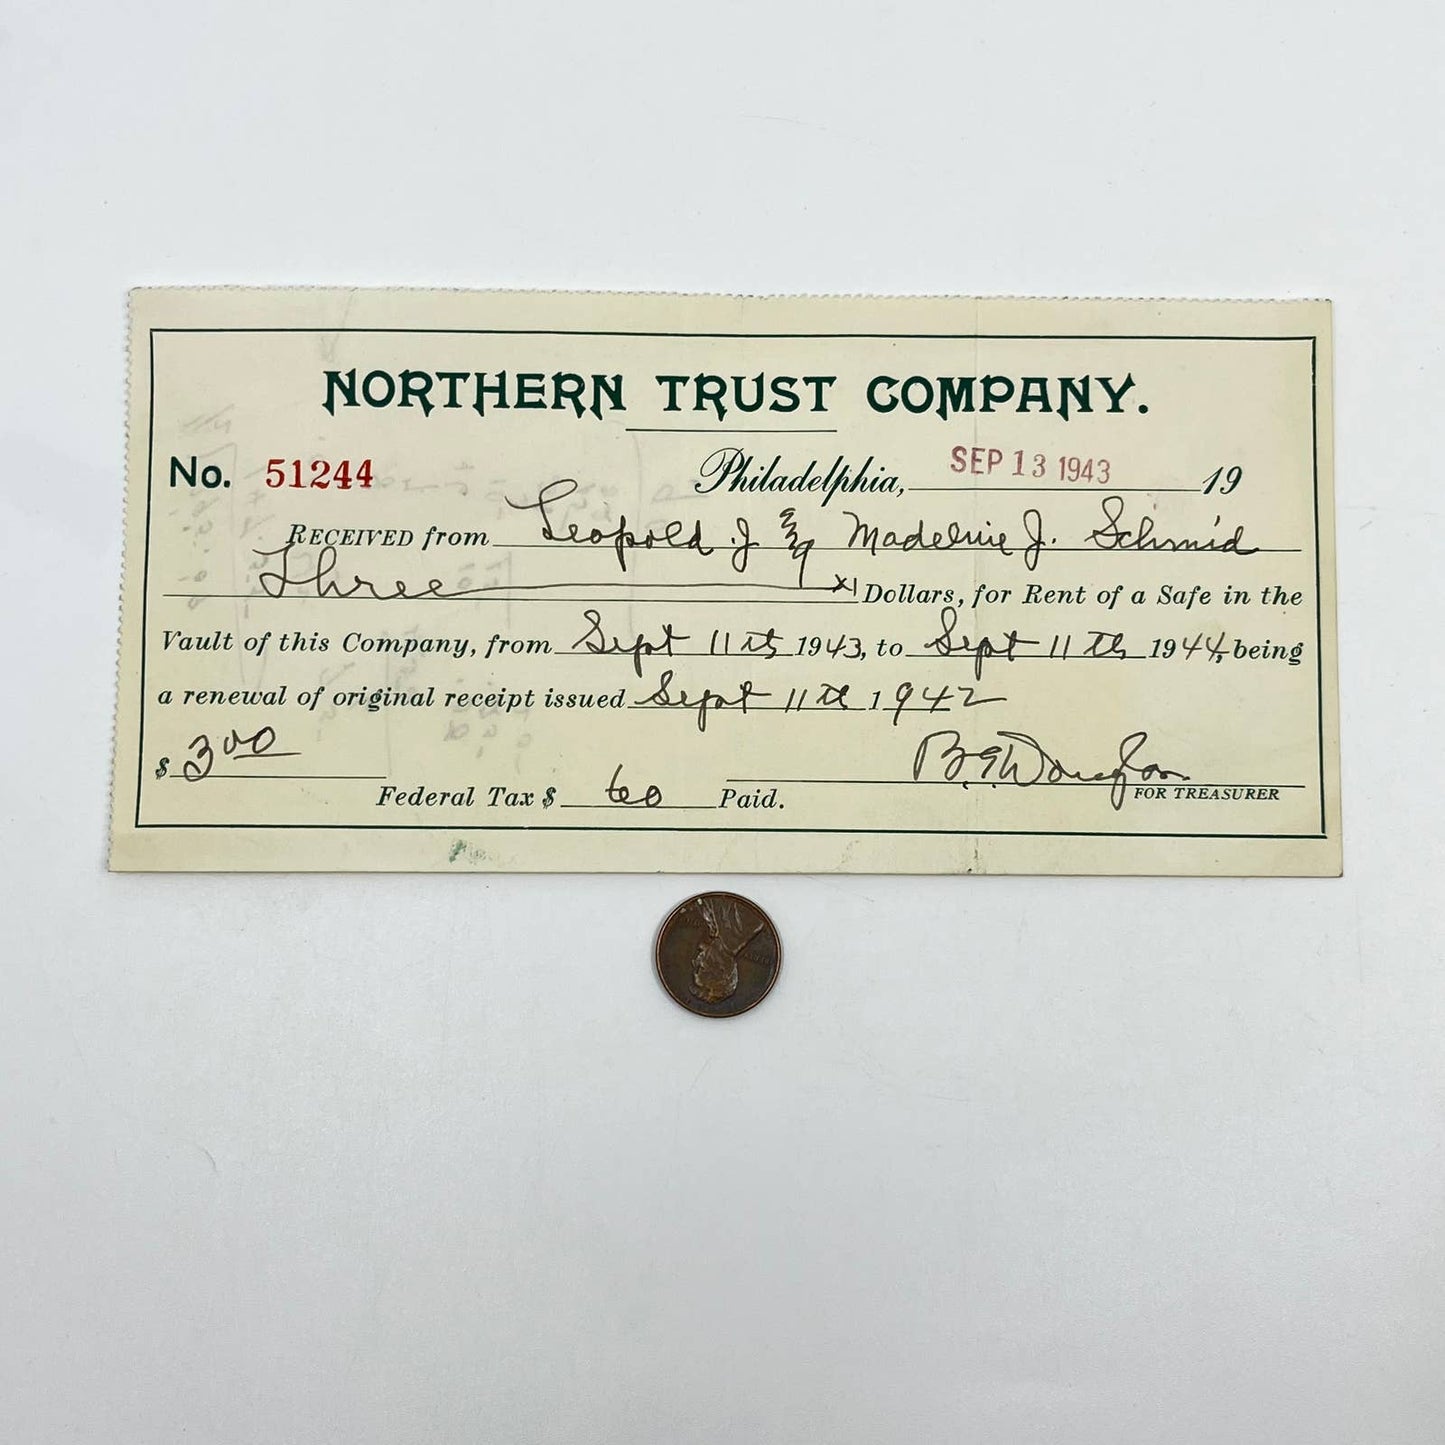 NORTHERN TRUST COMPANY.
No. 51244 Philadelphia, SEP 13 1943 19
RECEIVED from Leopold J & Madeline J. Schmid
Three Dollars, for Rent of a Safe in the
Vault of this Company, from Sept 11th 1943, to Sept 11th 1944, being
a renewal of original receipt issued Sept 11th 1942
$ 3 00
Federal Tax $ 60 Paid.
FOR TREASURER